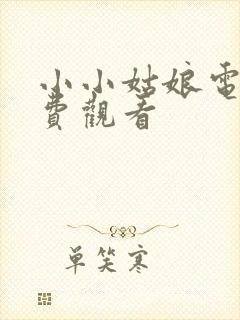 小小姑娘電
費觀看
单笑寒